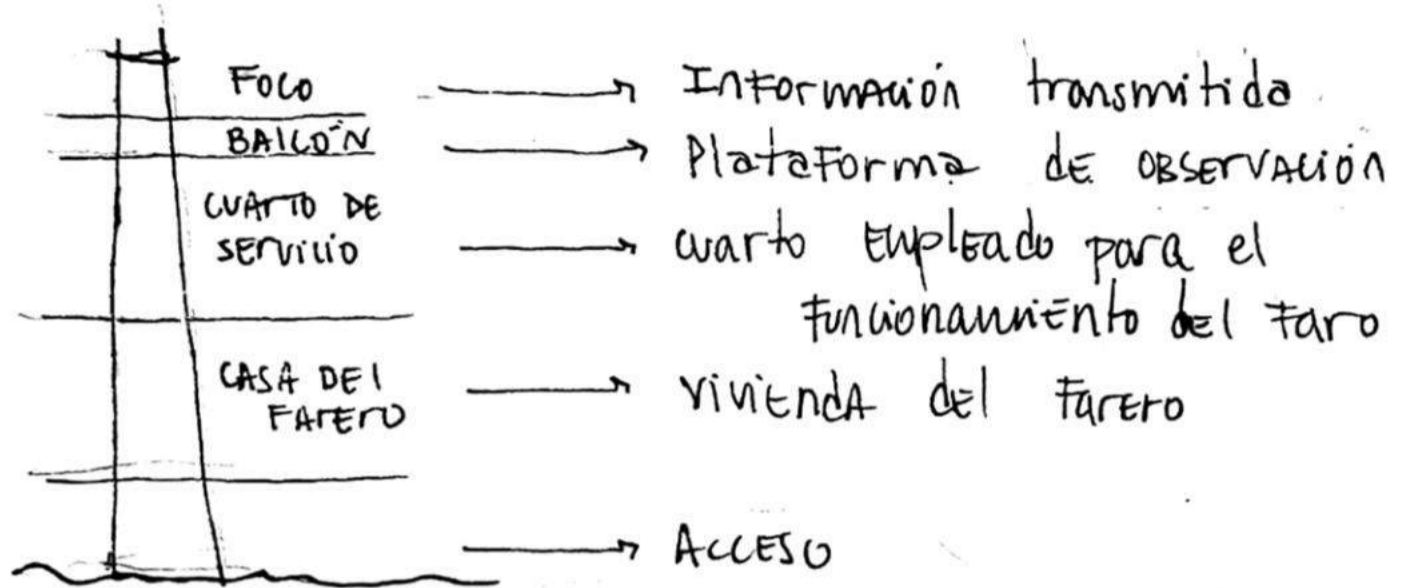 FOCO
Información transmitida
BALCÓN
Plataforma de observación
CUARTO DE
SERVICIO
cuarto empleado para el
funcionamiento del faro
CASA DEL
FARERO
vivienda del farero
ACCESO